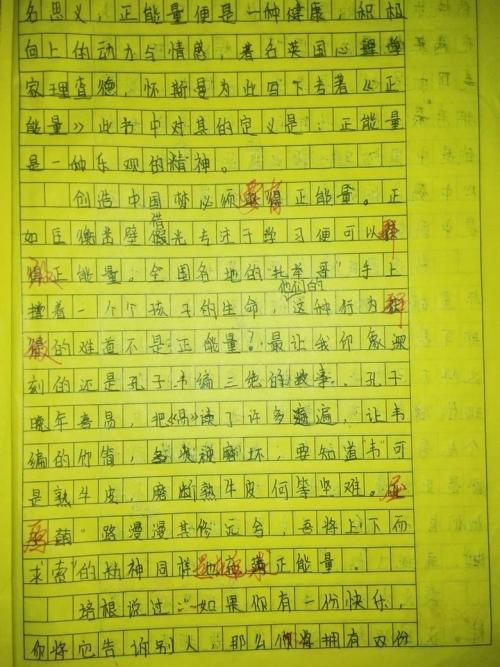 名思义，正能量便是一种健康，积极
向上的动力与情感，著名英国心理学
家理查德 怀斯曼为此写下专著《正
能量》此书中对其的定义是：正能量
是一种乐观的精神。
创造中国梦必须要有正能量。正
如匡衡凿壁借光专注于学习便可以释
放正能量。全国各地的"托举哥"手上
撞着一个个孩子的生命，他们的这种行为释
放的难道不是正能量？最让我印象深
刻的还是孔子韦编三绝的故事、孔子
晚年喜易，把《易》读了许多遍，让韦
编的竹简，多次被磨坏，要知道"韦"可
是熟牛皮，磨断熟牛皮何等坚难。屈
原"路漫漫其修远兮，吾将上下而
求索"的精神同样也是正能量．
培根说过："如果你有一份快乐，
你将它告诉别人，那么你将拥有两份